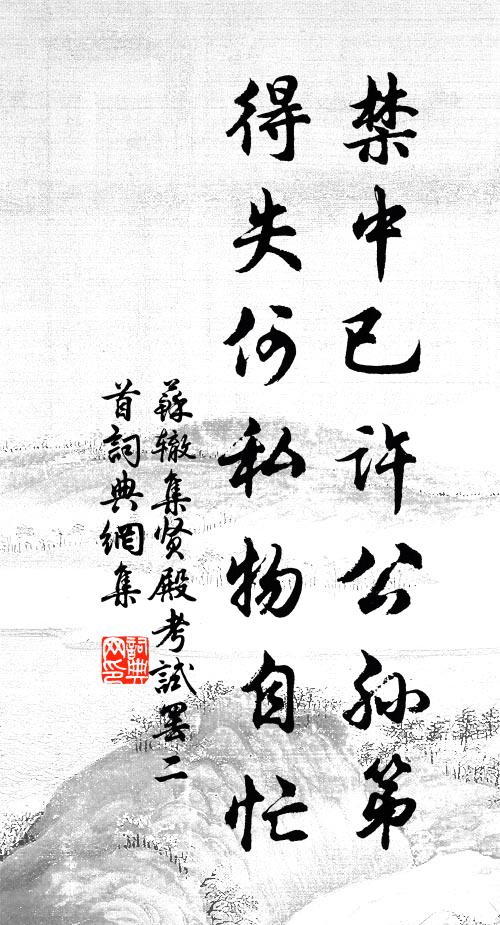 禁中已许公孙第
得失何私物自忙
苏辙集贤殿考試罢二
首詞典網集
詞典
网印